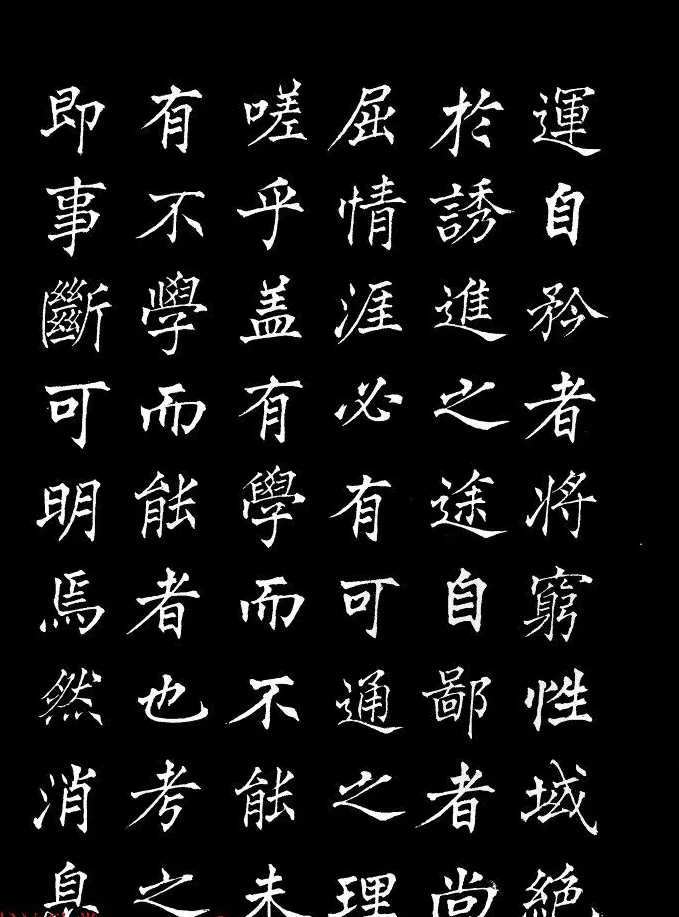 運自矜者將窮性域絶
於誘進之途自鄙者尚
屈情涯必有可通之理
嗟乎盖有學而不能未
有不學而能者也考之
即事斷可明焉然消息